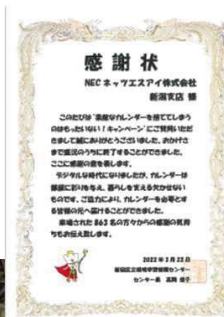 感謝状
NECネッツエスアイ株式会社
新潟支店 様
このたびは「素敵なカレンダーを捨ててしまう
のはもったいない!キャンペーン」にご賛同いただ
きまして誠にありがとうございました。おかげさ
まで盛況のうちに終了することができました。
ここに感謝の意を表します。
デジタルな時代になりましたが、カレンダーは
部屋に彩りを与え、暮らしを支える欠かせない
ものです。ご協力により、カレンダーを必要とす
る皆様の元へ届けることができました。
来場された863名の方々からの感謝の気持
ちもお伝え致します。
2022年3月23日
センター長